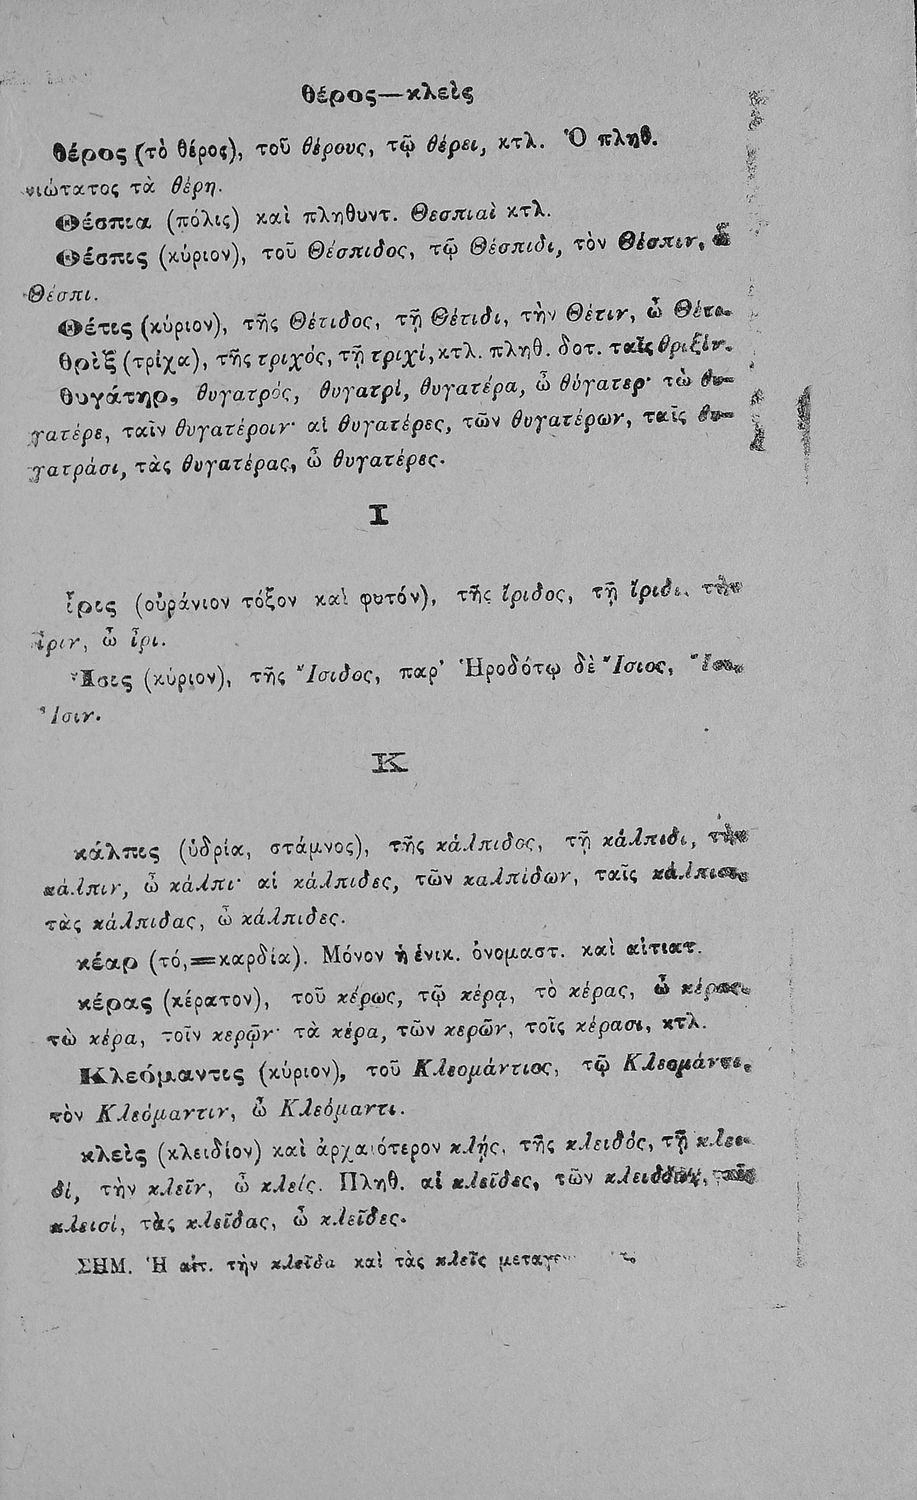 θέρος—κλεὶς
θέρος (τὸ θέρος), τοῦ θέρους, τῷ θέρει, κτλ. Ὁ πληθ.
νιώτατος τὰ θέρη.
Θέσπια (πόλις) καὶ πληθυντ. Θεσπιαὶ κτλ.
Θέσπις (κύριον), τοῦ Θέσπιδος, τῷ Θέσπιδι, τὸν Θέσπιν, ὦ
Θέσπι.
Θέτις (κύριον), τῆς Θέτιδος, τῇ Θέτιδι, τὴν Θέτιν, ὦ Θέτι.
θρὶξ (τρίχα), τῆς τριχός, τῇ τριχί, κτλ. πληθ. δοτ. ταῖς θριξίν.
θυγάτηρ, θυγατρός, θυγατρί, θυγατέρα, ὦ θύγατερ· τὼ θυ-
γατέρε, ταῖν θυγατέροιν· αἱ θυγατέρες, τῶν θυγατέρων, ταῖς θυ-
γατράσι, τὰς θυγατέρας, ὦ θυγατέρες.
Ι
ἶρις (οὐράνιον τόξον καὶ φυτόν), τῆς ἴριδος, τῇ ἴριδι, τὴν
ἶριν, ὦ ἶρι.
Ἶσις (κύριον), τῆς Ἴσιδος, παρ' Ἡροδότῳ δὲ Ἴσιος,
Ἶσιν.
Κ
κάλπις (ὑδρία, στάμνος), τῆς κάλπιδος, τῇ κάλπιδι, τὴν
κάλπιν, ὦ κάλπι· αἱ κάλπιδες, τῶν καλπίδων, ταῖς κάλπισι,
τὰς κάλπιδας, ὦ κάλπιδες.
κέαρ (τό,=καρδία). Μόνον ἡ ἑνικ. ὀνομαστ. καὶ αἰτιατ.
κέρας (κέρατον), τοῦ κέρως, τῷ κέρᾳ, τὸ κέρας, ὦ κέρας.
τὼ κέρα, τοῖν κερῷν· τὰ κέρα, τῶν κερῶν, τοῖς κέρασι, κτλ.
Κλεόμαντις (κύριον), τοῦ Κλεομάντιος, τῷ Κλεομάντι,
τὸν Κλεόμαντιν, ὦ Κλεόμαντι.
κλεὶς (κλειδίον) καὶ ἀρχαιότερον κλῄς, τῆς κλειδός, τῇ κλει-
δί, τὴν κλεῖν, ὦ κλείς. Πληθ. αἱ κλεῖδες, τῶν κλειδῶν, ταῖς
κλεισί, τὰς κλεῖδας, ὦ κλεῖδες.
ΣΗΜ. Ἡ αἰτ. τὴν κλεῖδα καὶ τὰς κλεῖς